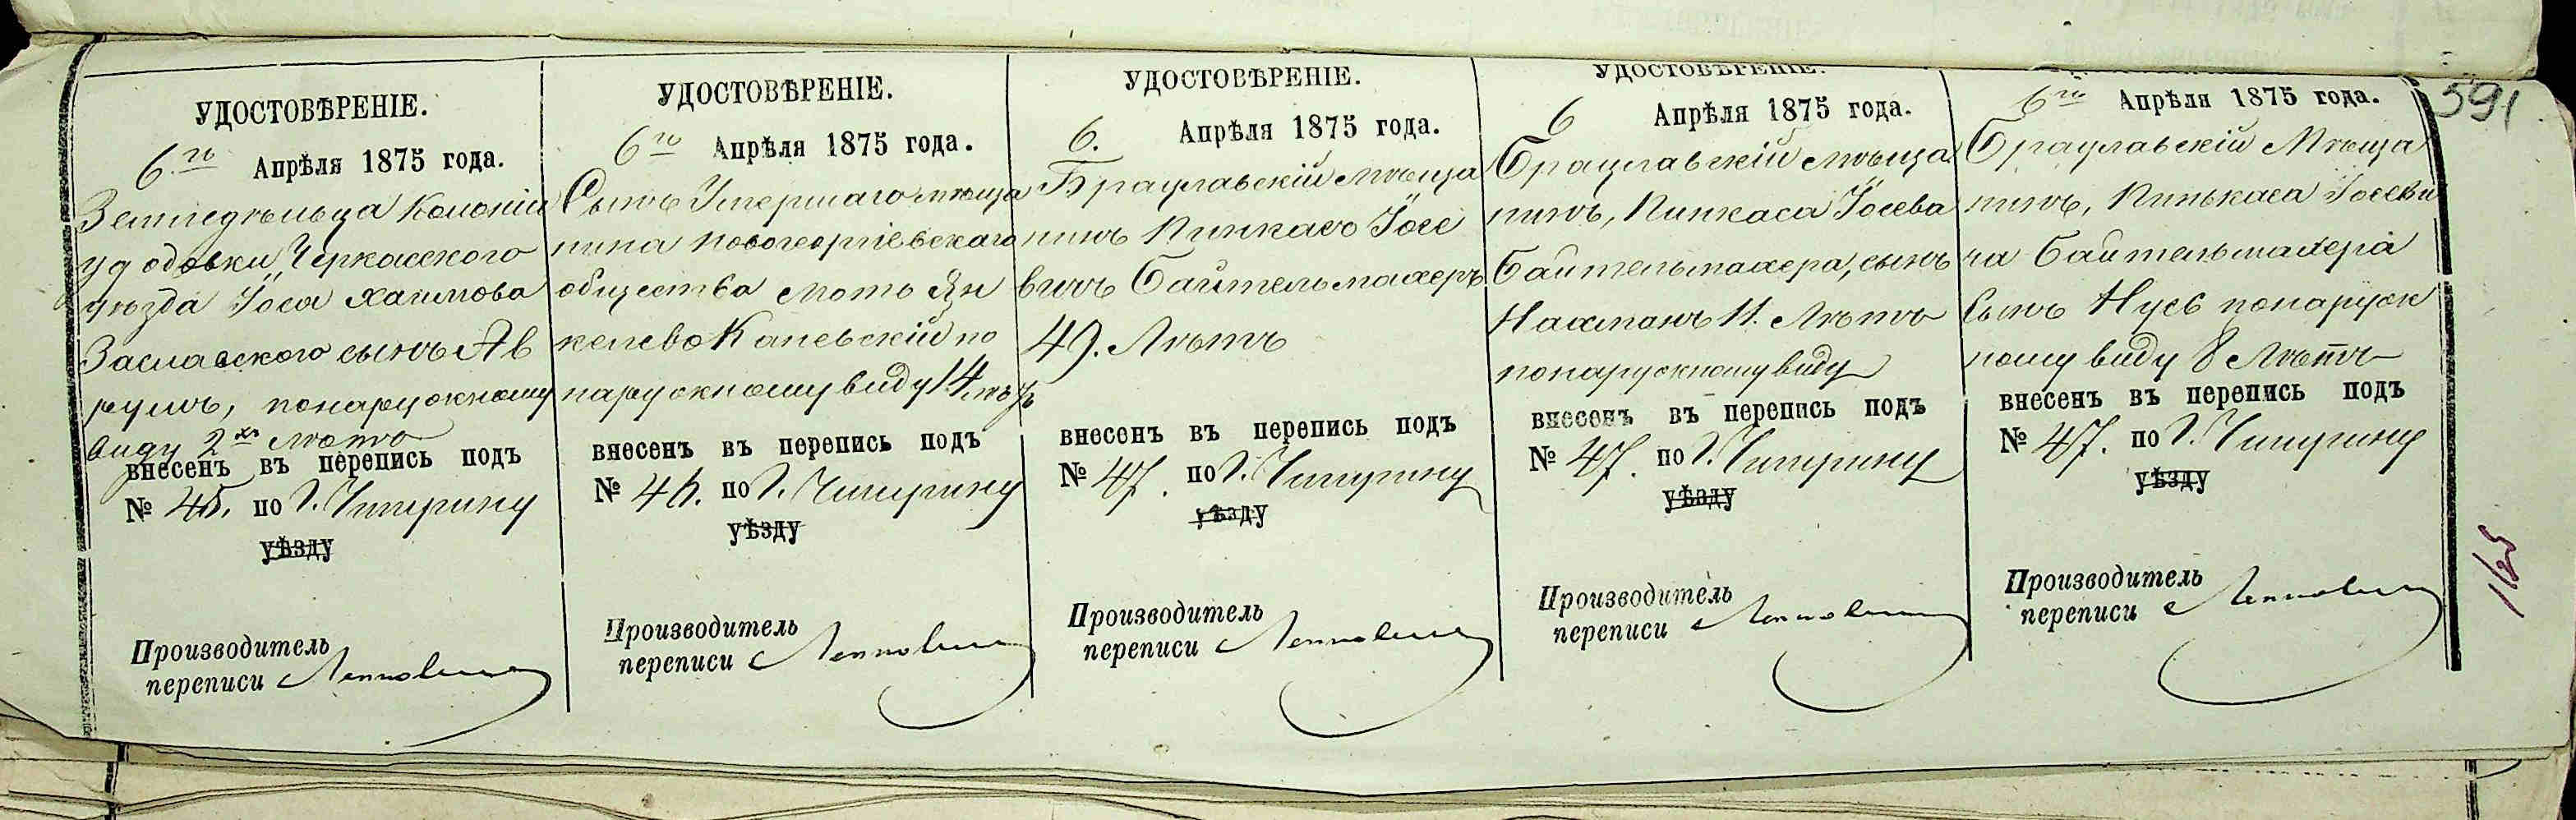 УДОСТОВѢРЕНІЕ.
6.го Апрѣля 1875 года.
Земледѣльца Колоніи
Удодовки, Черкасского
уѣзда Іося Хаимова
Заславского сынъ Ав
румъ, понаружному
виду 2хъ лѣтъ
внесенъ въ перепись подъ
№ 45. по Г. Чигирину
уѣзду
Производитель
переписи
УДОСТОВѢРЕНІЕ.
6го Апрѣля 1875 года.
Сынъ Умершаго мѣща
нина Новогеоргіевскаго
общества Мото Ян
келево Каневскій по
наружному виду 14 лѣтъ
внесенъ въ перепись подъ
№ 46. по Г. Чигирину
уѣзду
Производитель
переписи
УДОСТОВѢРЕНІЕ.
6. Апрѣля 1875 года.
Брацлавскій мѣща
нинъ Пинкасъ Іосе
вичъ Байтельмахеръ
49. Лѣтъ
внесенъ въ перепись подъ
№ 47. по Г. Чигирину
уѣзду
Производитель
переписи
УДОСТОВѢРЕНІЕ.
6 Апрѣля 1875 года.
Брацлавскій мѣща
нинъ, Пинкаса Іосева
Байтельмахера, сынъ
Нахманъ 11. Лѣтъ
понаружному виду
внесенъ въ перепись подъ
№ 47. по Г. Чигирину
уѣзду
Производитель
переписи
6го Апрѣля 1875 года.
Брацлавскій Мѣща
нинъ, Пинькаса Іосеви
ча Байтельмахера
Сынъ Нусъ понаружн
ному виду 8 Лѣтъ
внесенъ въ перепись подъ
№ 47. по Г. Чигирину
уѣзду
Производитель
переписи
591